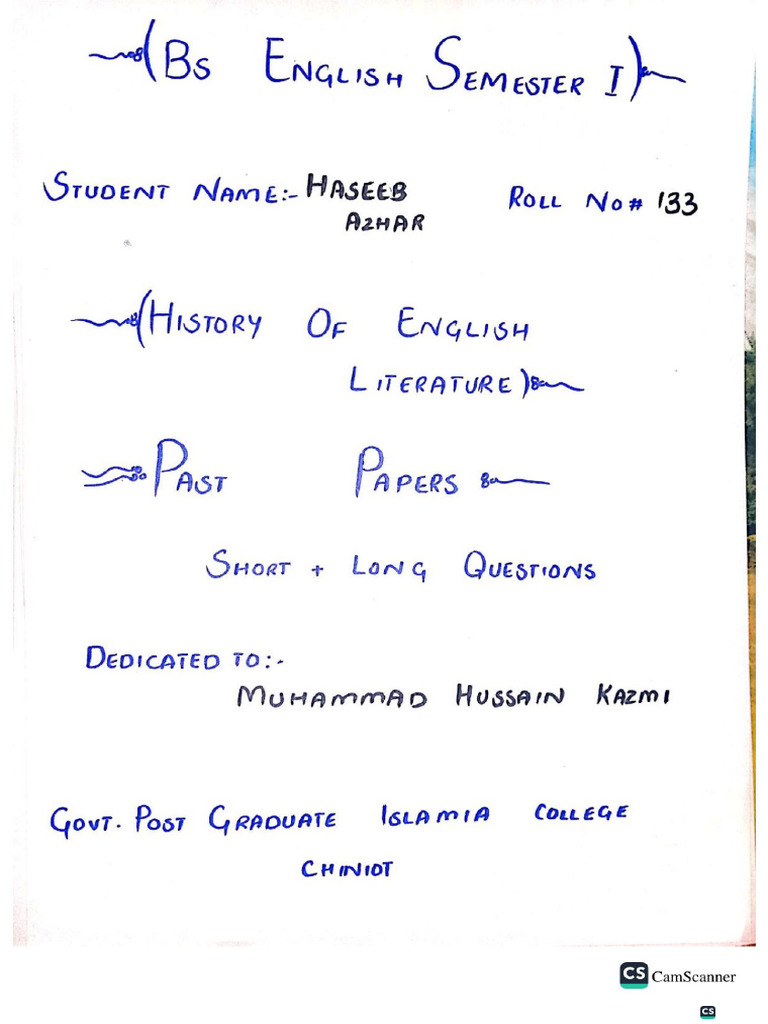 (BS ENGLISH SEMESTER I)
STUDENT NAME:- HASEEB AZHAR ROLL NO# 133
(HISTORY OF ENGLISH
LITERATURE)
PAST PAPERS
SHORT + LONG QUESTIONS
DEDICATED TO:-
MUHAMMAD HUSSAIN KAZMI
GOVT. POST GRADUATE ISLAMIA COLLEGE
CHINIOT
CS CamScanner
CS